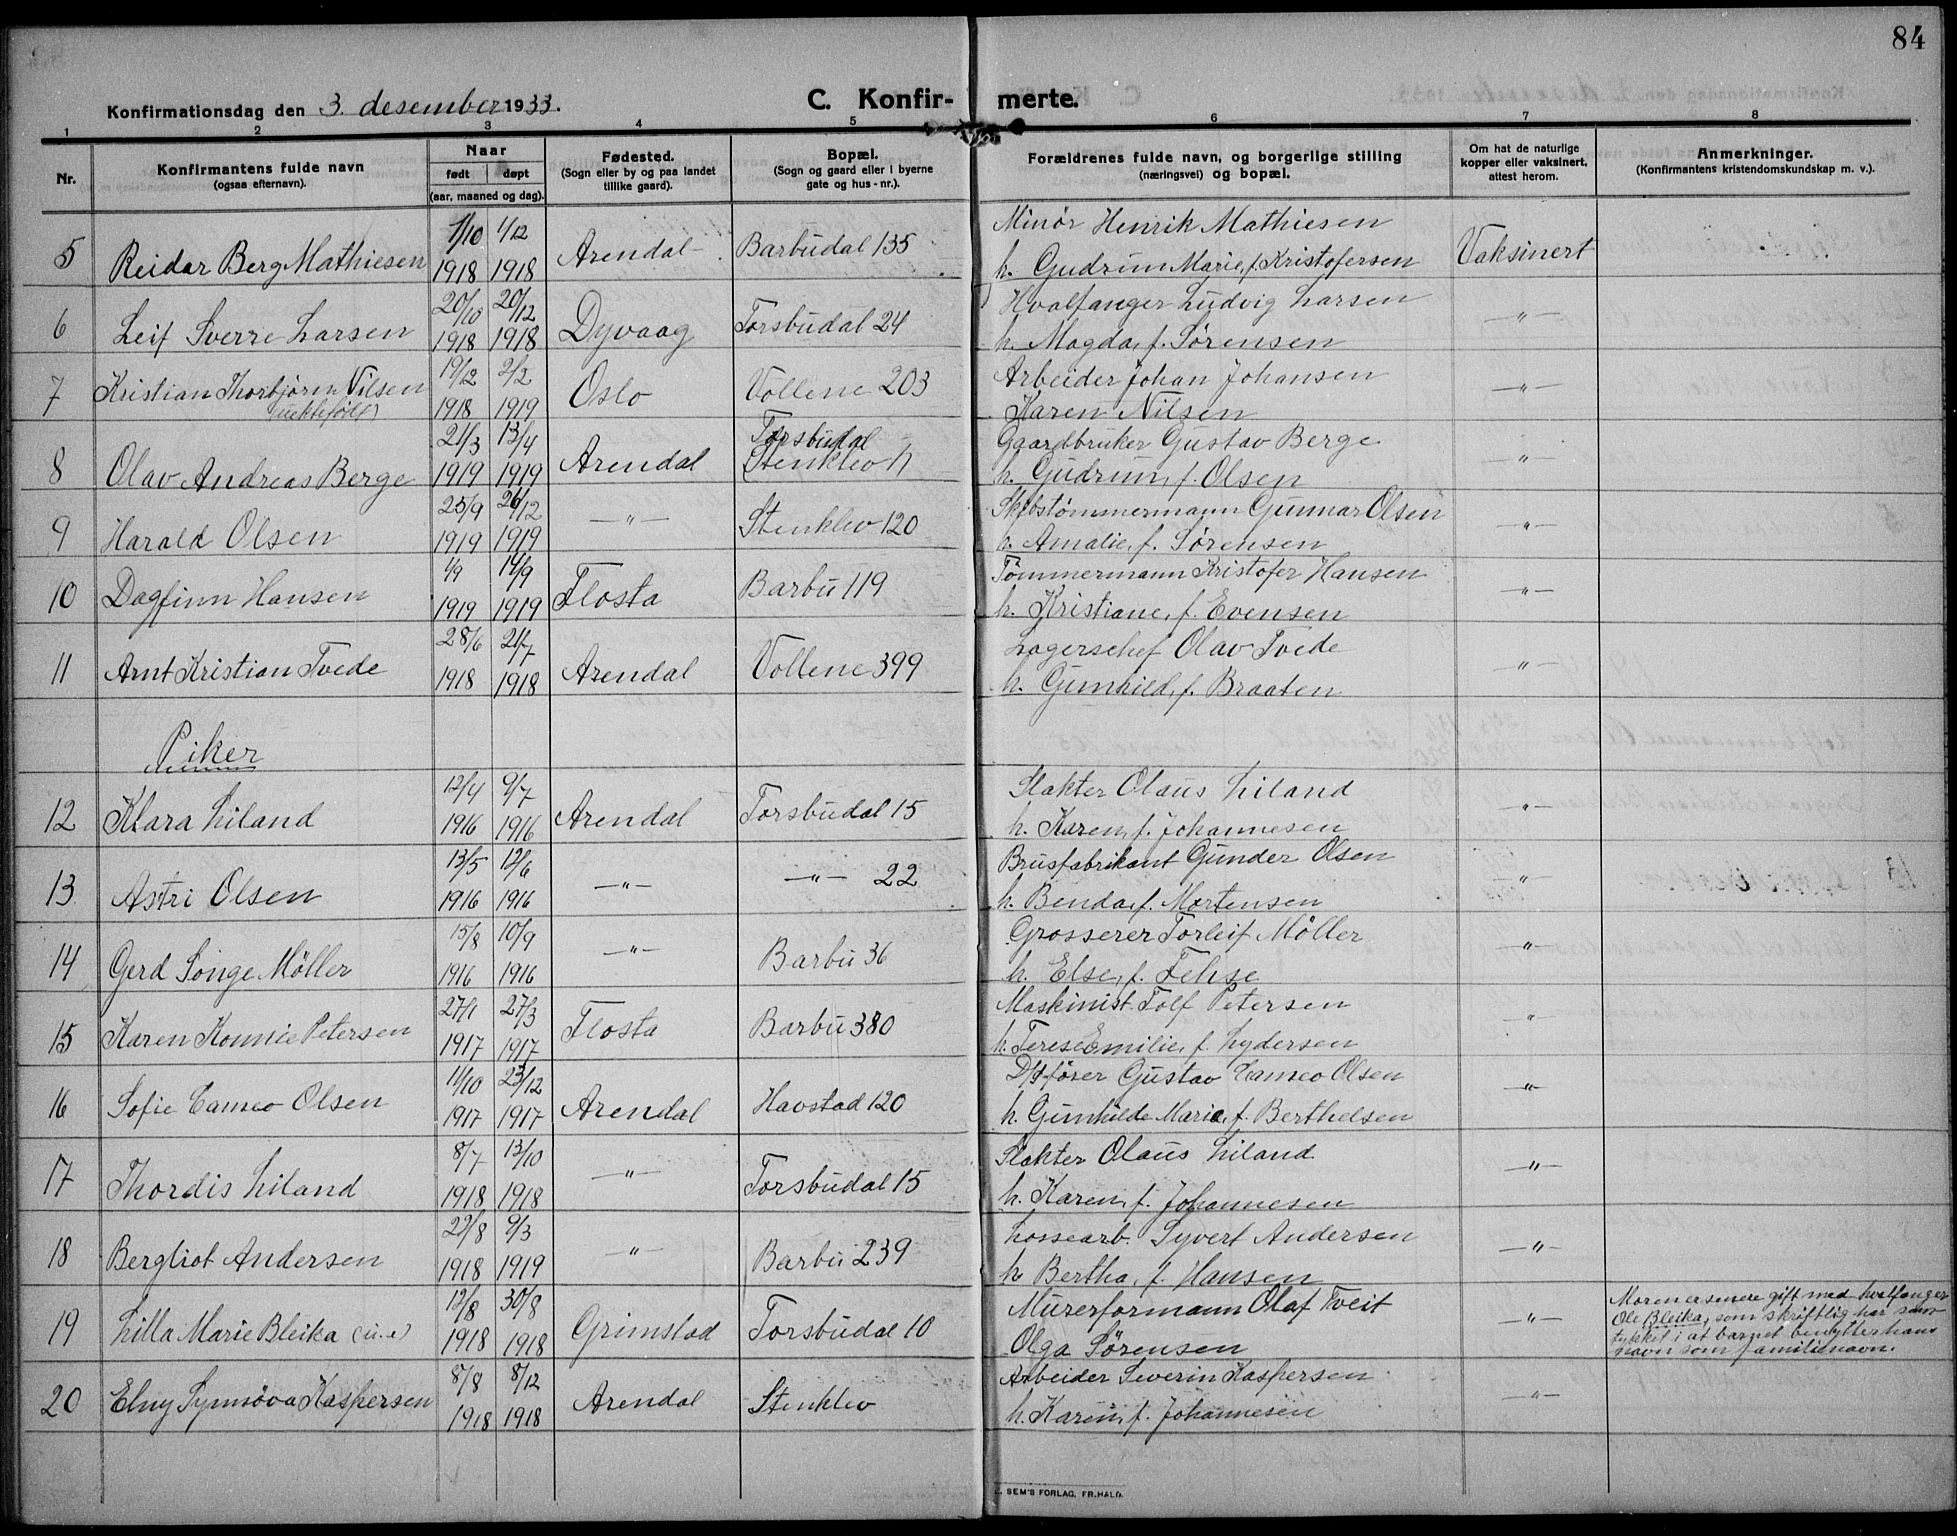 84
Konfirmationsdag den 3. desember 1933.
C. Konfir- merte.
1 2 3 4 5 6 7 8
Nr.
Konfirmantens fulde navn
(ogsaa efternavn).
Naar
født døpt
(aar, maaned og dag).
Fødested.
(Sogn eller by og paa landet
tillike gaard).
Bopæl.
(Sogn og gaard eller i byerne
gate og hus-nr.).
Forældrenes fulde navn, og borgerlige stilling
(næringsvei) og bopæl.
Om hat de naturlige
kopper eller vaksinert,
attest herom.
Anmerkninger.
(Konfirmantens kristendomskundskap m. v.).
1/10 1/12 Minør Henrik Mathiesen
5 Reidar Berg Mathiesen 1918 1918 Arendal Barbudal 135 h. Gudrun Marie, f. Kristofersen Vaksinert
20/10 20/12 Hvalfanger Ludvig Larsen
6 Leif Sverre Larsen 1918 1918 Dyvaag Torsbudal 24 h. Magda, f. Sørensen —"—
19/12 2/2 Arbeider Johan Johansen
7 Kristian Thorbjørn Nilsen 1918 1919 Oslo Vollene 203 Karen Nilsen —"—
(uektefött)
21/3 13/4 Torsbudal Gaardbruker Gustav Berge
8 Olav Andreas Berge 1919 1919 Arendal Stenklev h. Gudrun, f. Olsen —"—
25/9 26/12 Skibstømmermann Gunnar Olsen
9 Harald Olsen 1919 1919 —"— Stenklev 120 h. Amalie, f. Sørensen —"—
1/9 14/9 Tømmermann Kristofer Hansen
10 Dagfinn Hansen 1919 1919 Flosta Barbu 119 h. Kristiane, f. Evensen —"—
28/6 21/7 Lagerschef Olav Tvede
11 Arnt Kristian Tvede 1918 1918 Arendal Vollene 399 h. Gunhild, f. Braaten —"—
Piker
12/4 9/7 Slakter Olaus Liland
12 Klara Liland 1916 1916 Arendal Torsbudal 15 h. Karen, f. Johannesen —"—
13/5 12/6 Brusfabrikant Gunder Olsen
13 Astri Olsen 1916 1916 —"— —"— 22 h. Benda, f. Mortensen —"—
15/8 10/9 Grosserer Torleif Möller
14 Gerd Songe Möller 1916 1916 —"— Barbu 36 h. Else, f. Fehse —"—
27/1 27/3 Maskinist Tolf Petersen
15 Karen Konnie Petersen 1917 1917 Flosta Barbu 380 h. Terese Emilie, f. Lydersen —"—
11/10 23/12 D/sfører Gustav Cameo Olsen
16 Sofie Cameo Olsen 1917 1917 Arendal Havstad 120 h. Gunhilde Marie, f. Berthelsen —"—
8/7 13/10 Slakter Olaus Liland
17 Thordis Liland 1918 1918 —"— Torsbudal 15 h. Karen, f. Johannesen —"—
22/8 9/3 Lossearb. Syvert Andersen
18 Bergliot Andersen 1918 1919 —"— Barbu 239 h Bertha, f. Hansen —"—
12/8 30/8 Murerformann Olaf Tveit
19 Lilla Marie Bleika (u.e) 1918 1918 Grimstad Torsbudal 10 Olga Sørensen —"—
Moren er senere gift med hvalfanger
Ole Bleika, som skriftlig har sam-
tykket i at barnet benytter hans
navn som familienavn.
8/8 8/12 Arbeider Severin Kaspersen
20 Elny Synnøva Kaspersen 1918 1918 Arendal Stenklev h. Karen, f. Johannesen —"—
SEM'S FORLAG, FR.HALD.